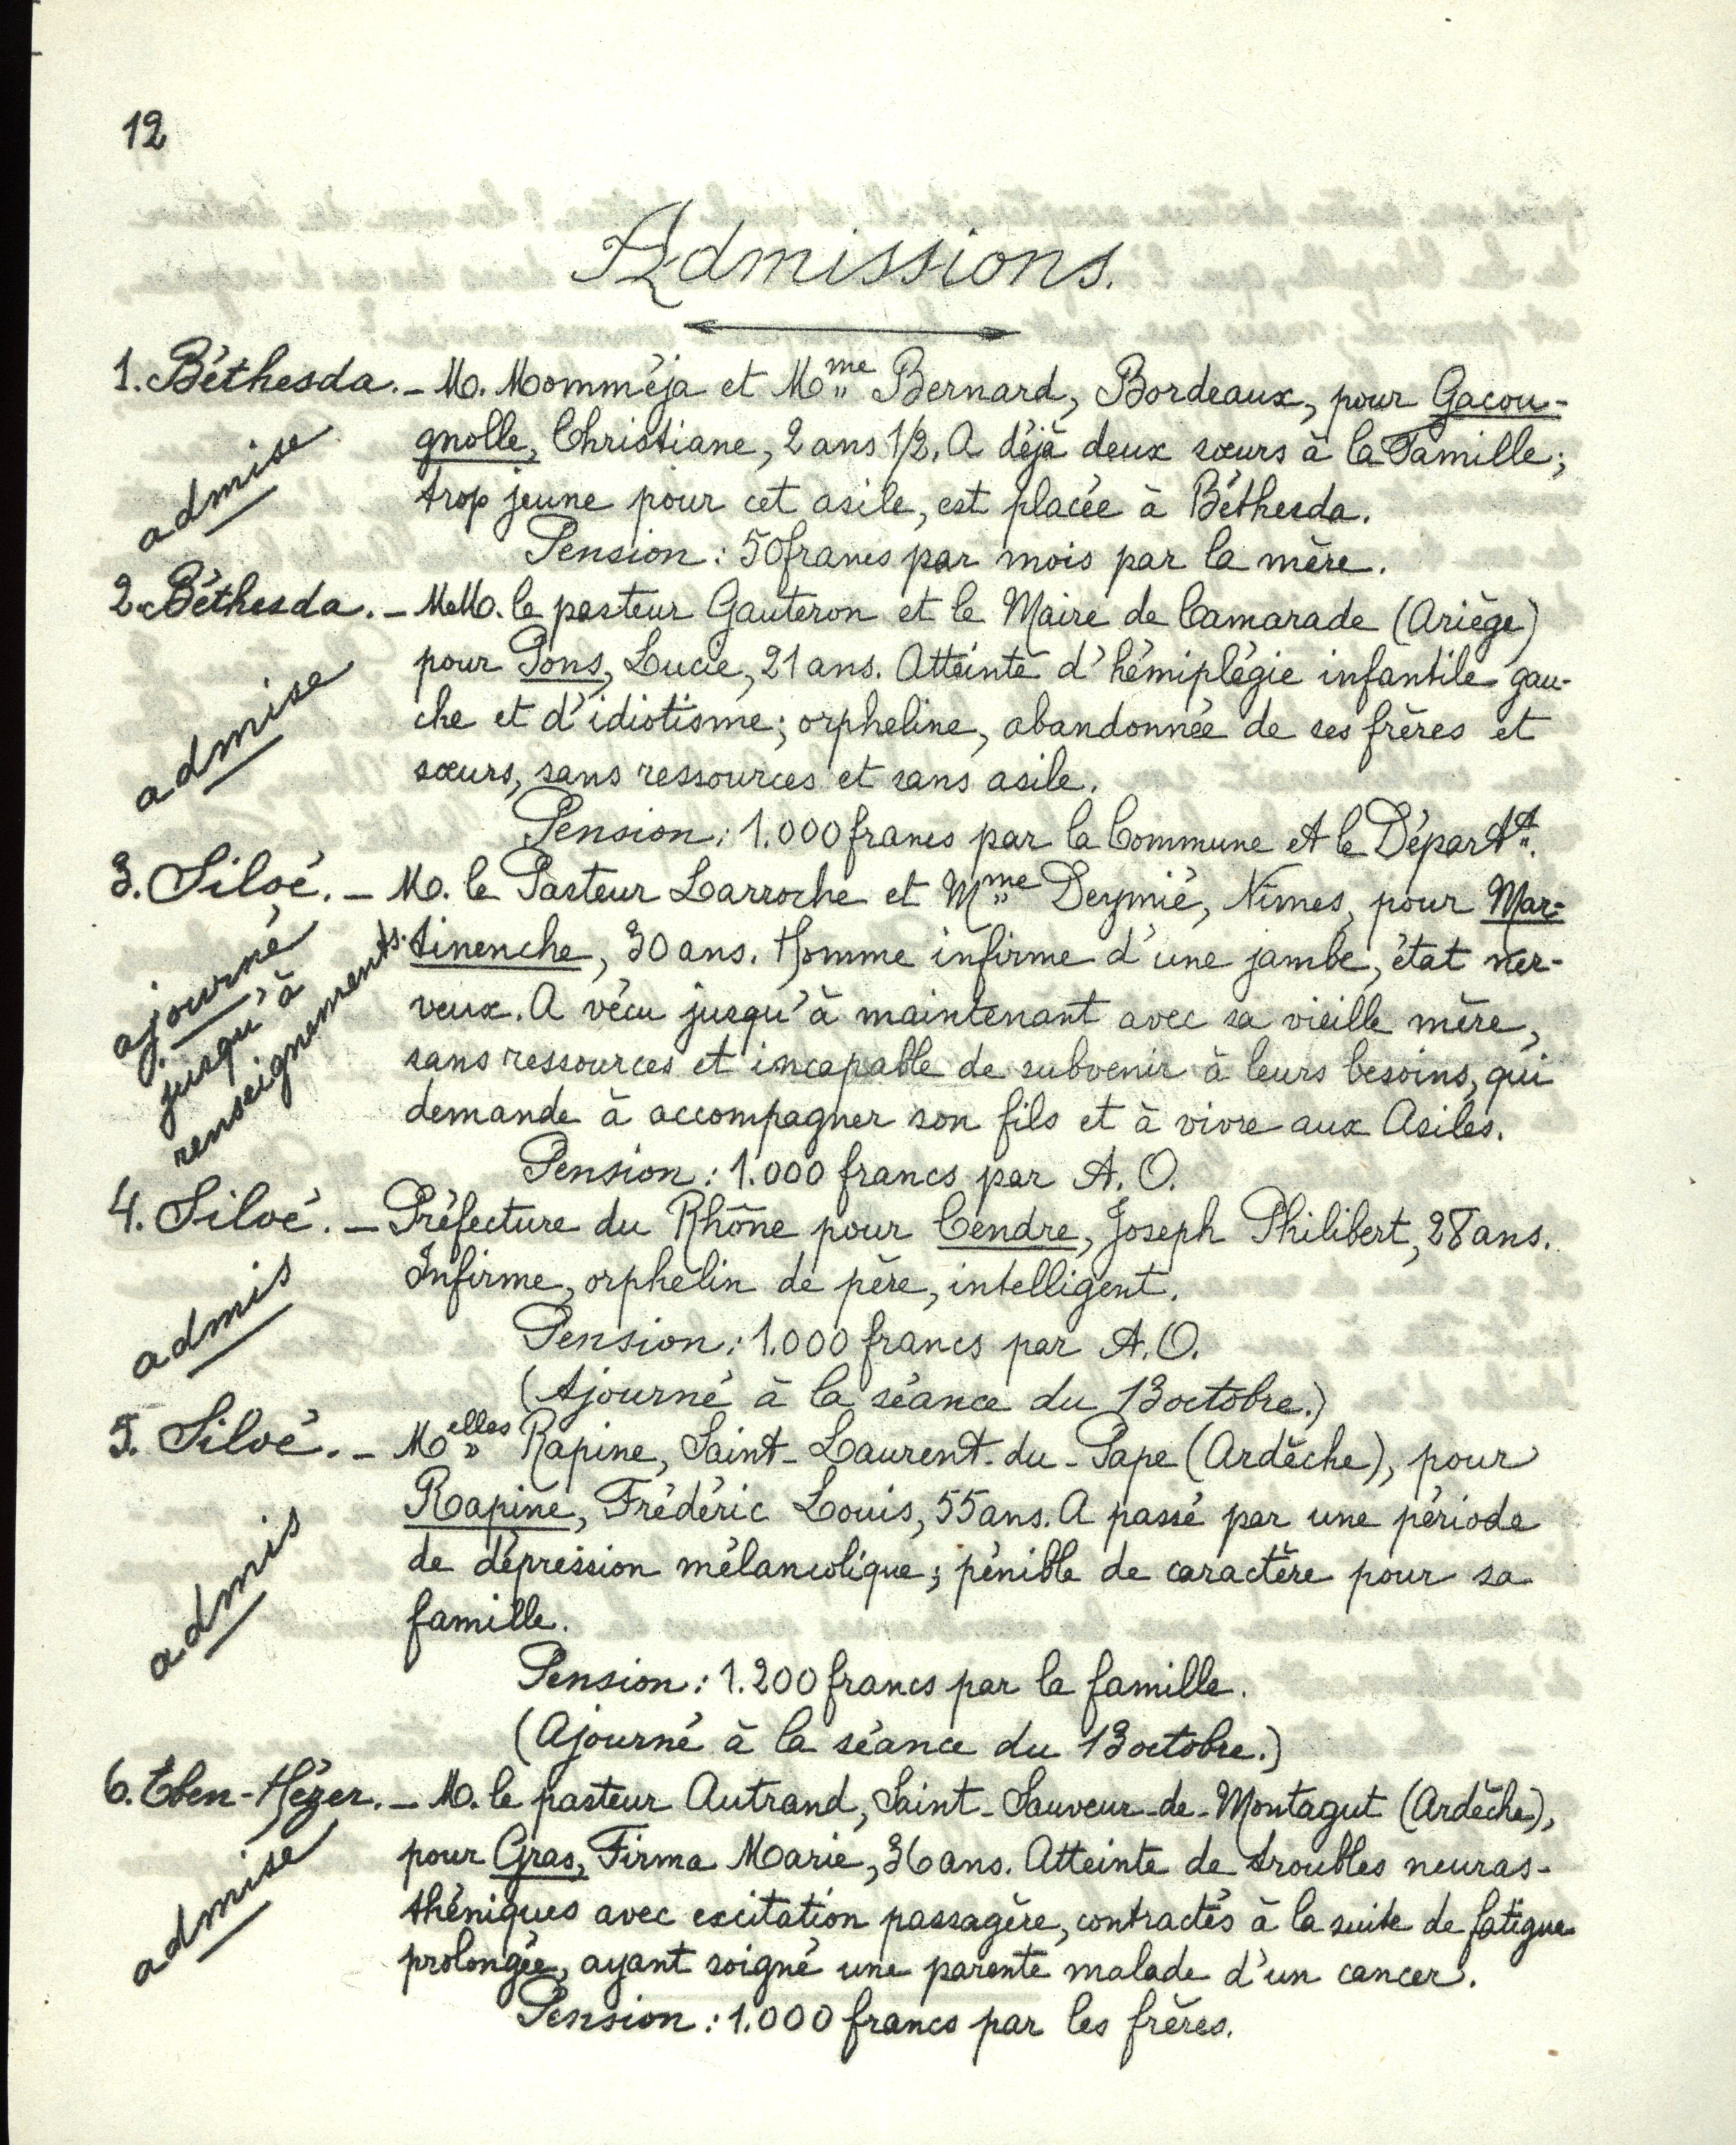 12
Admissions.
1. Béthesda. _ M. Momméja et Mme Bernard, Bordeaux, pour Gacou-
gnolle, Christiane, 2 ans 1/2. A déjà deux sœurs à la Famille;
admise
trop jeune pour cet asile, est placée à Béthesda.
Pension : 50 francs par mois par la mère.
2. Béthesda. _ MM. le pasteur Gauteron et le Maire de Camarade (Ariège)
pour Pons, Lucie, 21 ans. Atteinte d'hémiplégie infantile gau-
admise
che et d'idiotisme; orpheline, abandonnée de ses frères et
sœurs, sans ressources et sans asile.
Pension : 1.000 francs par la Commune et le Départt.
3. Siloé. _ M. le Pasteur Larroche et Mme Deymié, Nîmes, pour Mar-
tinenche, 30 ans. Homme infirme d'une jambe, état ner-
ajourné
jusqu'à
renseignements.
veux. A vécu jusqu'à maintenant avec sa vieille mère,
sans ressources et incapable de subvenir à leurs besoins, qui
demande à accompagner son fils et à vivre aux Asiles.
Pension : 1.000 francs par A. O.
4. Siloé. _ Préfecture du Rhône pour Cendre, Joseph Philibert, 28 ans.
Infirme, orphelin de père, intelligent.
admis
Pension : 1.000 francs par A. O.
(Ajourné à la séance du 13 octobre.)
5. Siloé. _ Melles Rapine, Saint-Laurent-du-Pape (Ardèche), pour
Rapine, Frédéric Louis, 55 ans. A passé par une période
admis
de dépression mélancolique; pénible de caractère pour sa
famille.
Pension : 1.200 francs par la famille.
(Ajourné à la séance du 13 octobre.)
6. Eben-Hézer. _ M. le pasteur Autrand, Saint-Sauveur-de-Montagut (Ardèche),
pour Gras, Firma Marie, 36 ans. Atteinte de troubles neuras-
admise
théniques avec excitation passagère, contractés à la suite de fatigue
prolongée, ayant soigné une parente malade d'un cancer.
Pension : 1.000 francs par les frères.